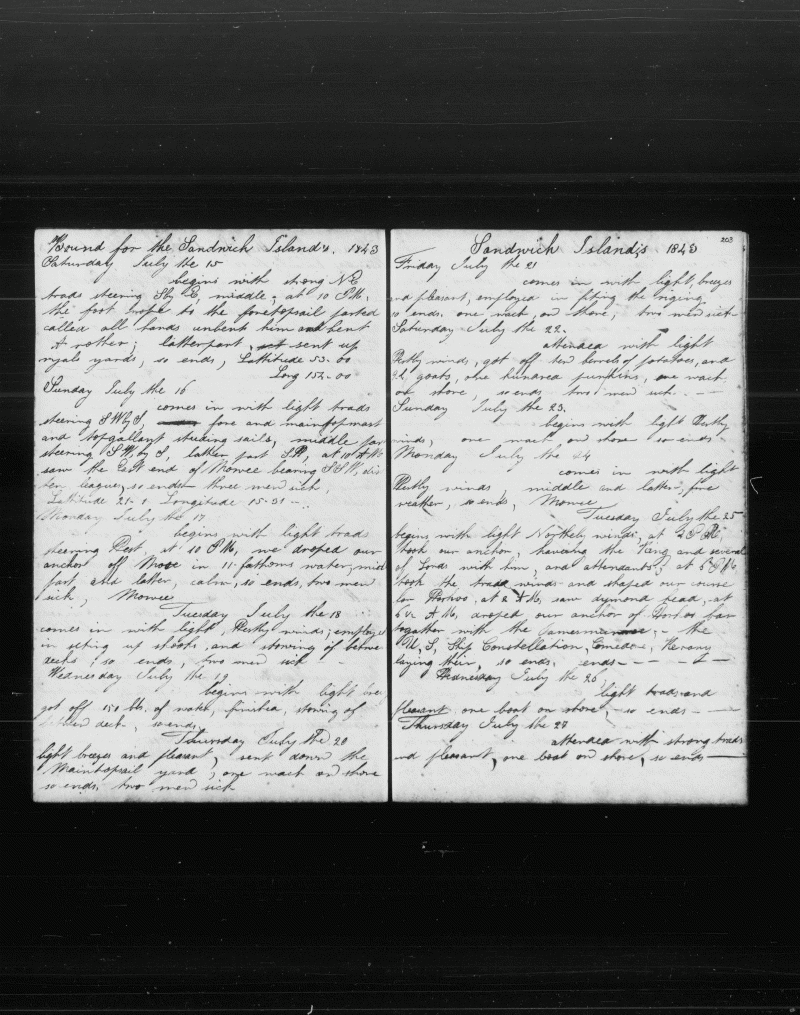 Bound for the Sandwich Island's. 1843
Saturday July the 15
begins with strong NE
trads steering Sby E, middle, at 10 PM.
the foot rope to the foretopsail parted
called all hands unbent him and bent
A nother; latterpart, sent up
ryals yards, so ends, Lattitude 53-00
Long 152-00
Sunday July the 16
comes in with light trads
steering SWbyS, fore and maintopmast
and topgallant studing sails, middle par
steering SWbyS, latter part SW, at 10 AM
saw the East end of Mowee bearing SSW, dis
ten league, so ends three men sick,
Latitude 21- 1 Longitude 15-31
Monday July the 17
begins with light trads
steering West at 10 PM, we droped our
anchor off Mowe in 11 fathoms water, mid
part and latter, calm, so ends, two men
sick, Mowee
Tuesday July the 18
comes in with light Westly winds; employed
in seting up stoots, and stowing of betwee
decks; so ends, two men sick
Wednesday July the 19
begins with light bre
got off 150 bbs. of water, finished, stowing of
between deck, so ends
Thursday July the 20
light breezes and pleasant, sent down the
Maintopsail yard; one wach on shore
so ends; two men sick
203
Sandwich Islandis 1843
Friday July the 21
comes in with light, breezes
and pleasant, employed in fiting the riging
so ends. one wach on shore, two men sick
Saturday July the 22.
attended with light
Westly winds, got off ten barels of potatoes, and
goats, one hundred pumkins, one wach
on shore, so ends two men sick.
Sunday July the 23.
begins with light Westly
winds, one wach on shore so ends
Monday July the 24
comes in with light
Westly winds, middle and latter, fine
weather, so ends, Mowee
Tuesday July the 25
begins with light Northely winds, at 2 PM,
took our anchor, haveing the King and several
of Lords with him, and attendants; at 6 PM
took the trade winds and shaped our course
for Woahoo, at 2 AM, saw dymond head, at
6 1/2 AM, droped our anchor of Woahoo bar
togather with the the
U, S, Ship Constellation, Comedore, Kerony
laying their, so ends, ends
Wednesday July the 26
light trads and
pleasant one boat on shore, so ends
Thursday July the 27
attended with strong trads
and pleasant, one boat on shore, so ends